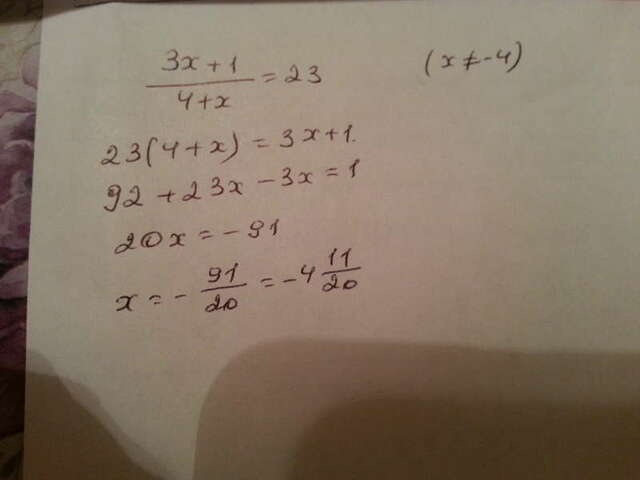 (3x+1)/(4+x) = 23 (x≠-4)
23(4+x) = 3x+1.
92+23x-3x=1
20x=-91
x=-91/20=-4 11/20